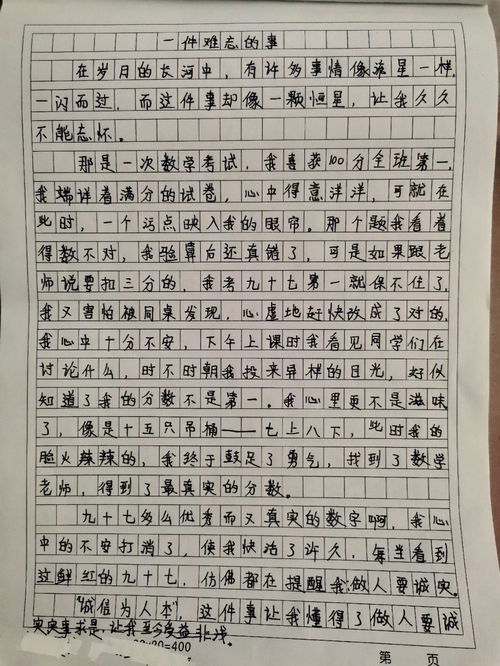 一件难忘的事
在岁月的长河中，有许多事情像流星一样，
一闪而过，而这件事却像一颗恒星，让我久久
不能忘怀。
那是一次数学考试，我喜获100分全班第一，
我端详着满分的试卷，心中得意洋洋，可就在
此时，一个污点映入我的眼帘。那个题我看着
得数不对，我验算后还真错了，可是如果跟老
师说要扣三分的，我考九十七第一就保不住了，
我又害怕被同桌发现，心虚地赶快改成了对的。
我心中十分不安，下午上课时我看见同学们在
讨论什么，时不时朝我投来异样的目光，好似
知道了我的分数不是第一。我心里更不是滋味
了，像是十五只吊桶——七上八下，此时我的
脸火辣辣的，我终于鼓足了勇气，找到了数学
老师，得到了最真实的分数。
九十七多么优秀而又真实的数字啊，我心
中的不安打消了，使我快活了许久，每当看到
这鲜红的九十七，仿佛都在提醒我：做人要诚实。
“诚信为人本”，这件事让我懂得了做人要诚
实实事求是，让我至今受益非浅。
20×20=400
第 页